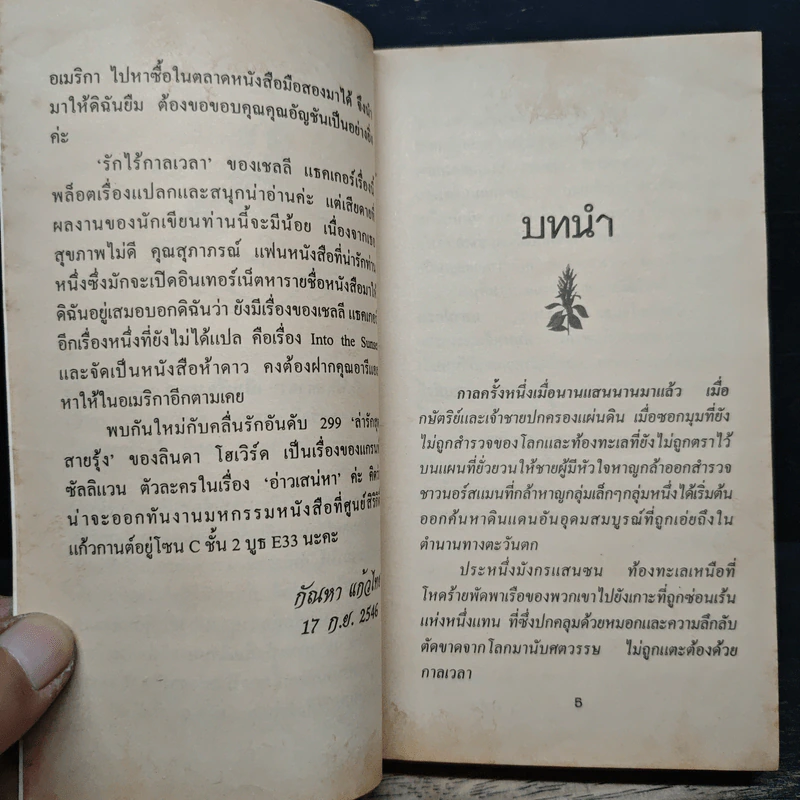 อเมริกา ไปหาซื้อในตลาดหนังสือมือสองมาได้ จึงนำ
มาให้ดิฉันยืม ต้องขอขอบคุณคุณอัญชันเป็นอย่างยิ่ง
ค่ะ
'รักไร้กาลเวลา' ของเชลลี แธคเกอร์เรื่องนี้
พล็อตเรื่องแปลกและสนุกน่าอ่านค่ะ แต่เสียดายที่
ผลงานของนักเขียนท่านนี้จะมีน้อย เนื่องจากเธอ
สุขภาพไม่ดี คุณสุภาภรณ์ แฟนหนังสือที่น่ารักท่าน
หนึ่งซึ่งมักจะเปิดอินเทอร์เน็ตหารายชื่อหนังสือมาให้
ดิฉันอยู่เสมอบอกดิฉันว่า ยังมีเรื่องของเชลลี แธคเกอร์
อีกเรื่องหนึ่งที่ยังไม่ได้แปล คือเรื่อง Into the Sunset
และจัดเป็นหนังสือห้าดาว คงต้องฝากคุณอารี
หาให้ในอเมริกาอีกตามเคย
พบกันใหม่กับคลื่นรักอันดับ 299 'ล่ารัก
สายรุ้ง' ของลินดา โฮเวิร์ด เป็นเรื่องของแกรนท์
ซัลลิแวน ตัวละครในเรื่อง 'อ่าวเสน่หา' ค่ะ คิดว่า
น่าจะออกทันงานมหกรรมหนังสือที่ศูนย์สิริกิติ์
แก้วกานต์อยู่โซน C ชั้น 2 บูธ E33 นะคะ
กัณหา แก้วไทย
17 ก.ย. 2546
บทนำ
กาลครั้งหนึ่งเมื่อนานแสนนานมาแล้ว เมื่อ
กษัตริย์และเจ้าชายปกครองแผ่นดิน เมื่อซอกมุมที่ยัง
ไม่ถูกสำรวจของโลกและท้องทะเลที่ยังไม่ถูกตราไว้
บนแผนที่ยั่วยวนให้ชายผู้มีหัวใจหาญกล้าออกสำรวจ
ชาวนอร์สแมนที่กล้าหาญกลุ่มเล็กๆกลุ่มหนึ่งได้เริ่มต้น
ออกค้นหาดินแดนอันอุดมสมบูรณ์ที่ถูกเอ่ยถึงใน
ตำนานทางตะวันตก
ประหนึ่งมังกรแสนซน ท้องทะเลเหนือที่
โหดร้ายพัดพาเรือของพวกเขาไปยังเกาะที่ถูกซ่อนเร้น
แห่งหนึ่งแทน ที่ซึ่งปกคลุมด้วยหมอกและความลึกลับ
ตัดขาดจากโลกมานับศตวรรษ ไม่ถูกแตะต้องด้วย
กาลเวลา
5